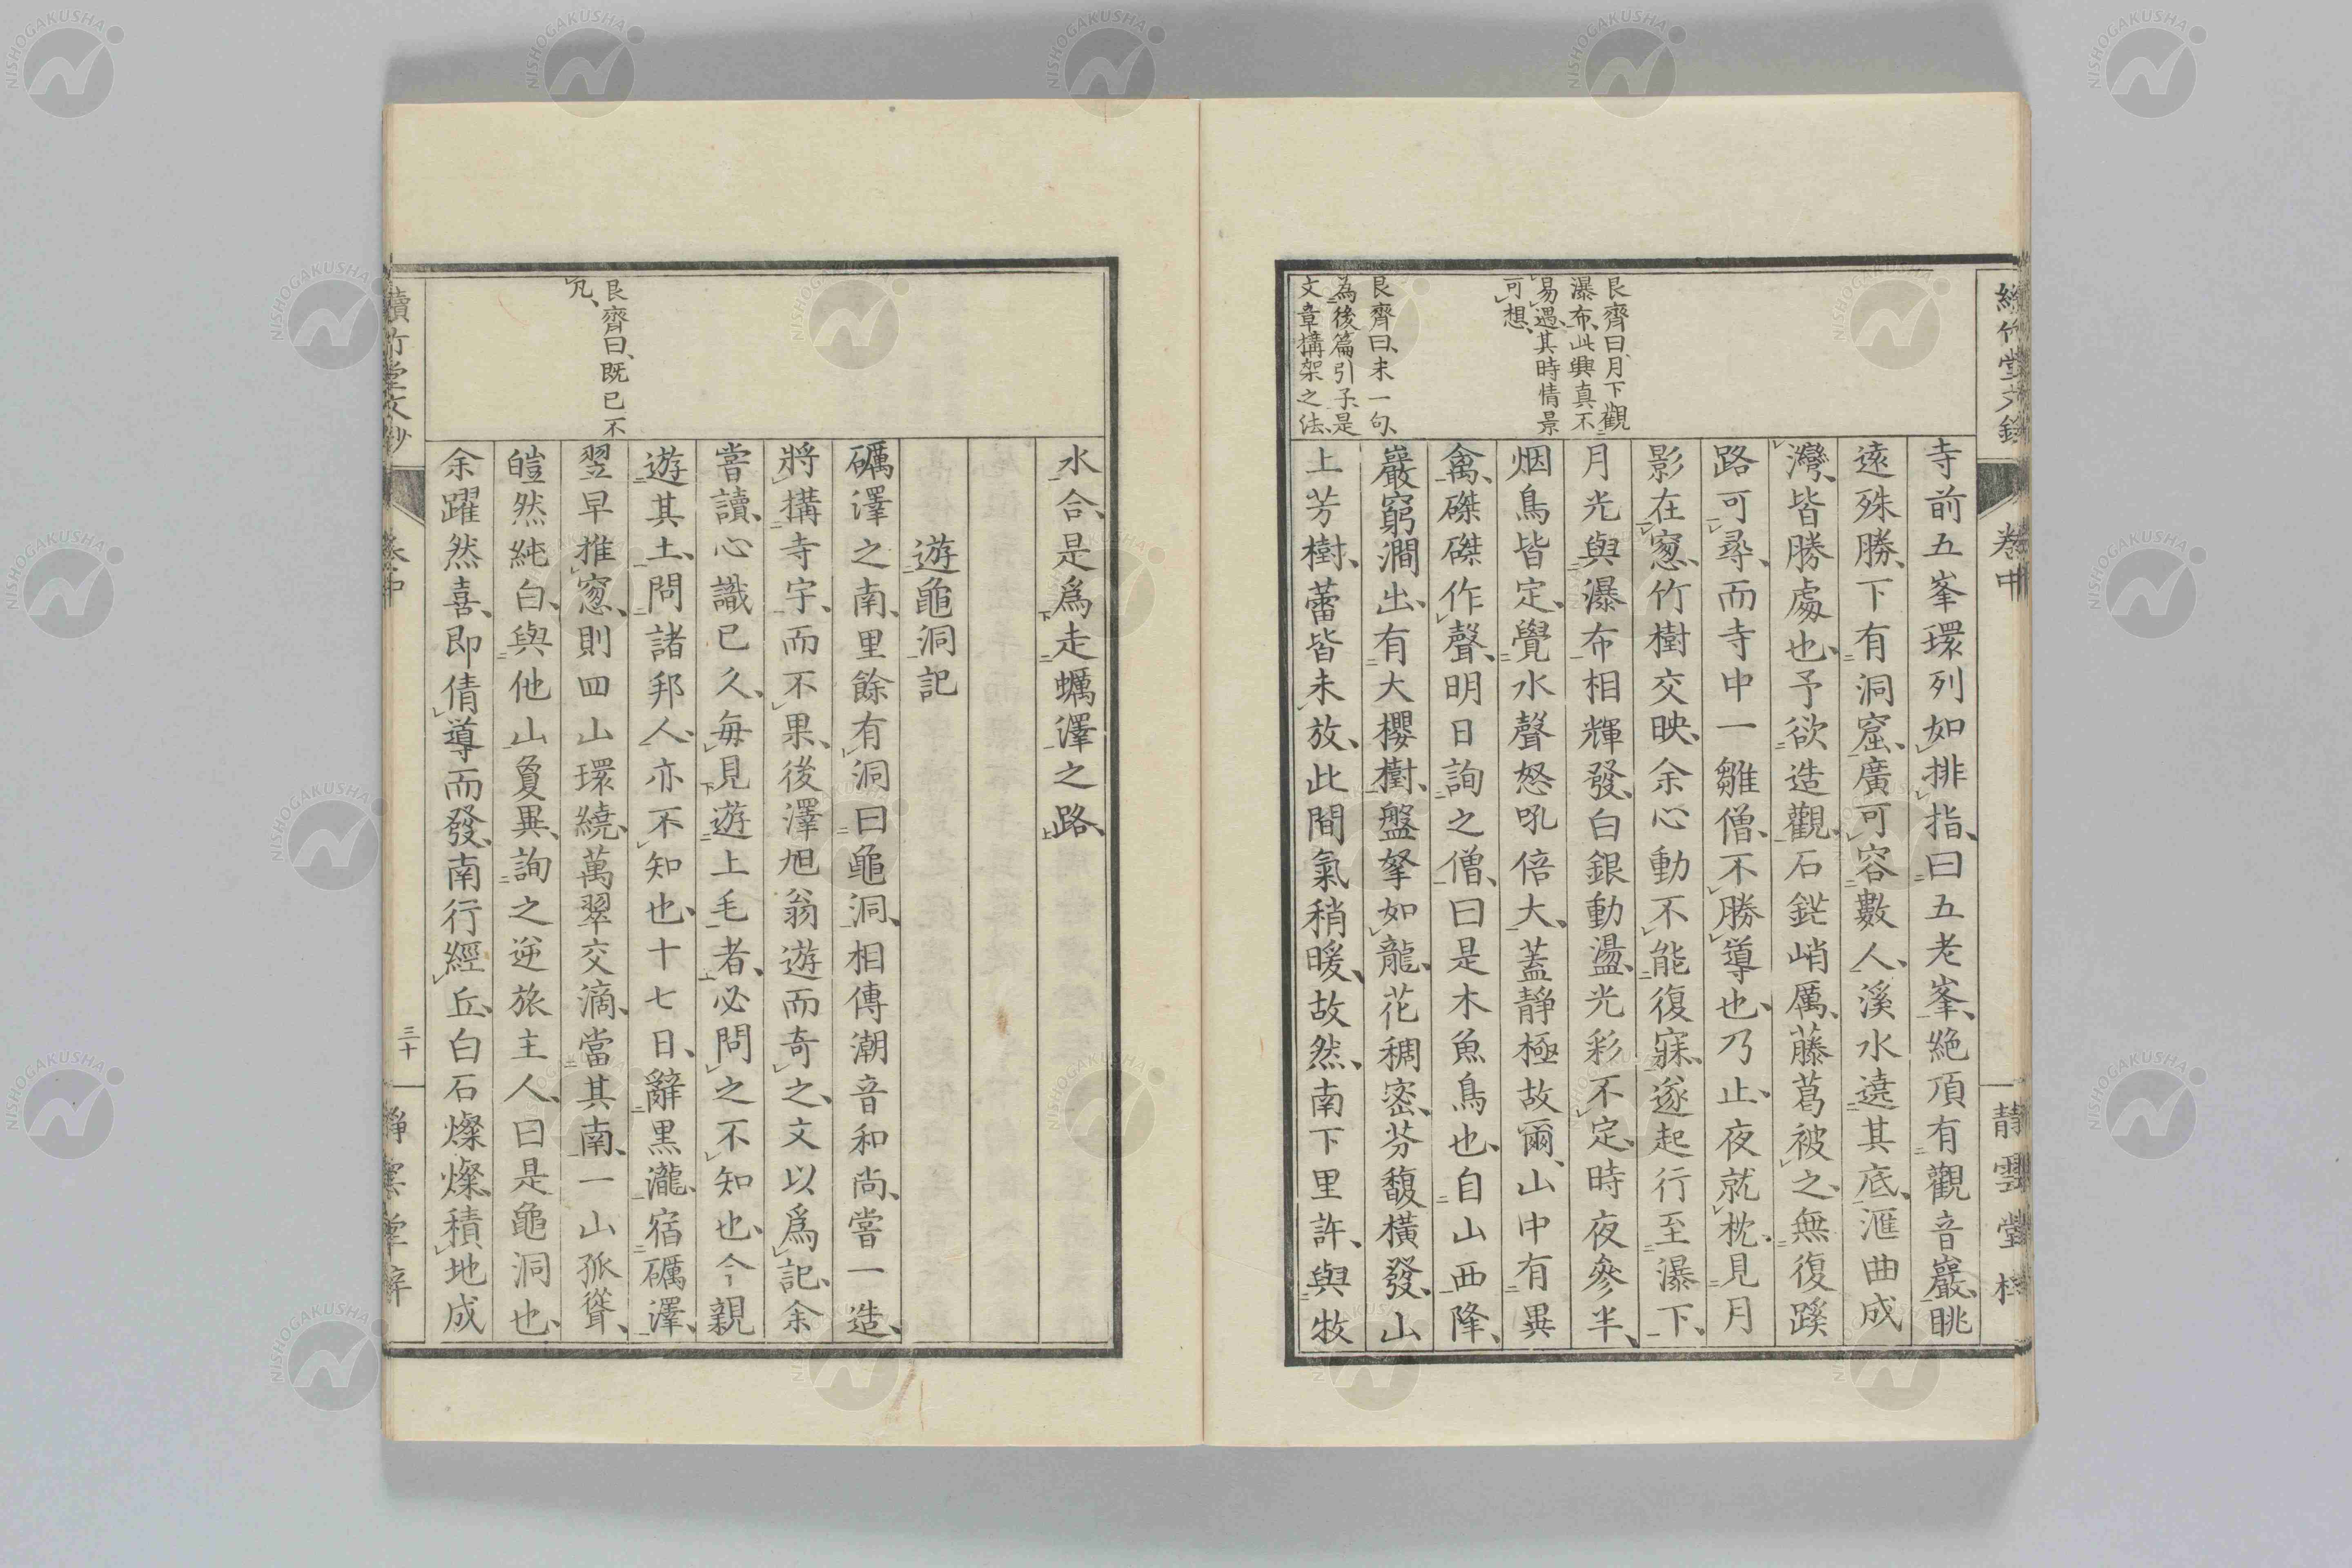 寺前五峯環列如排指、曰五老峯、絶頂有觀音巖、眺
遠殊勝、下有洞窟、廣可容數人、溪水遶其底、滙曲成
灣、皆勝處也、予欲造觀、石鋩峭厲、藤葛被之、無復蹊
路可尋、而寺中一雛僧、不勝導也、乃止、夜就枕、見月
影在窻、竹樹交映、余心動不能復寐、遂起行至瀑下、
月光與瀑布相輝發、白銀動盪、光彩不定、時夜參半、
烟鳥皆定、覺水聲怒吼倍大、蓋靜極故爾、山中有異
禽、磔磔作聲、明日詢之僧、曰是木魚鳥也、自山西降、
巖窮澗出、有大櫻樹、盤拏如龍、花稠密、芬馥橫發、山
上芳樹、蕾皆未放、此間氣稍暖、故然、南下里許、與牧
艮齊曰、月下觀
瀑布、此興真不
易遇、其時情景
可想、
艮齊曰、末一句、
為後篇引子、是
文章搆架之法、
卷中
水合、是爲走蠣澤之路、
遊龜洞記
礪澤之南、里餘有洞曰龜洞、相傳潮音和尚、嘗一造、
將搆寺宇、而不果、後澤旭翁遊而奇之、文以爲記、余
嘗讀、心識已久、每見遊上毛者、必問之不知也、今親
遊其土、問諸邦人、亦不知也、十七日、辭黒瀧、宿礪澤、
翌早推窻、則四山環繞、萬翠交滴、當其南、一山孤聳、
皚然純白、與他山敻異、詢之逆旅主人、曰是龜洞也、
余躍然喜、即倩導而發、南行經丘、白石燦燦、積地成
艮齊曰、既已不
凡、
三十